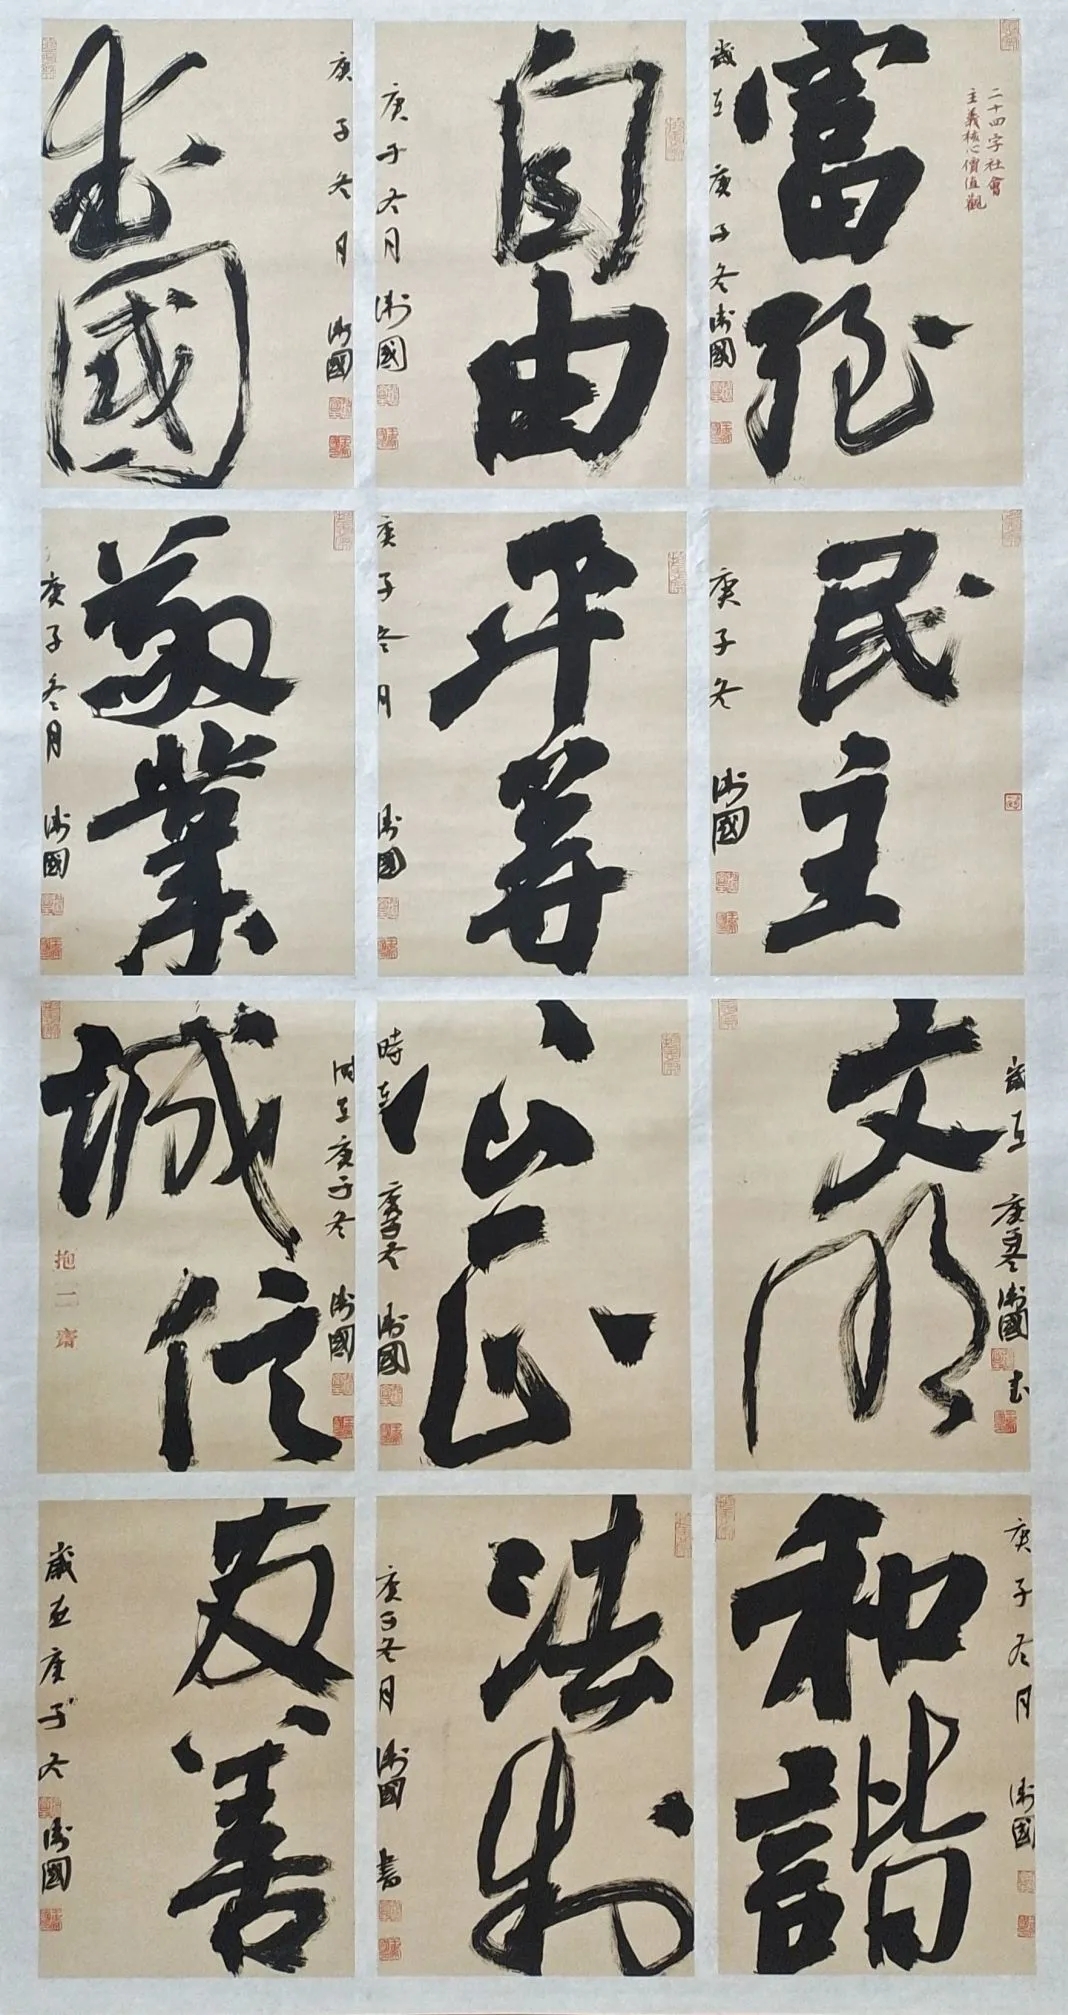 二十四字社會
主義核心價值觀
富強
歲在庚子冬衛國
民主
庚子冬衛國
歲在庚子冬衛國書
文明
庚子冬月衛國
和諧
自由
庚子冬月衛國
平等
庚子冬月衛國
公正
時在庚子冬衛國
法制
庚子冬月衛國書
庚子冬月衛國
愛國
敬業
庚子冬月衛國
時在庚子冬衛國
誠信
抱一齋
友善
歲在庚子冬衛國